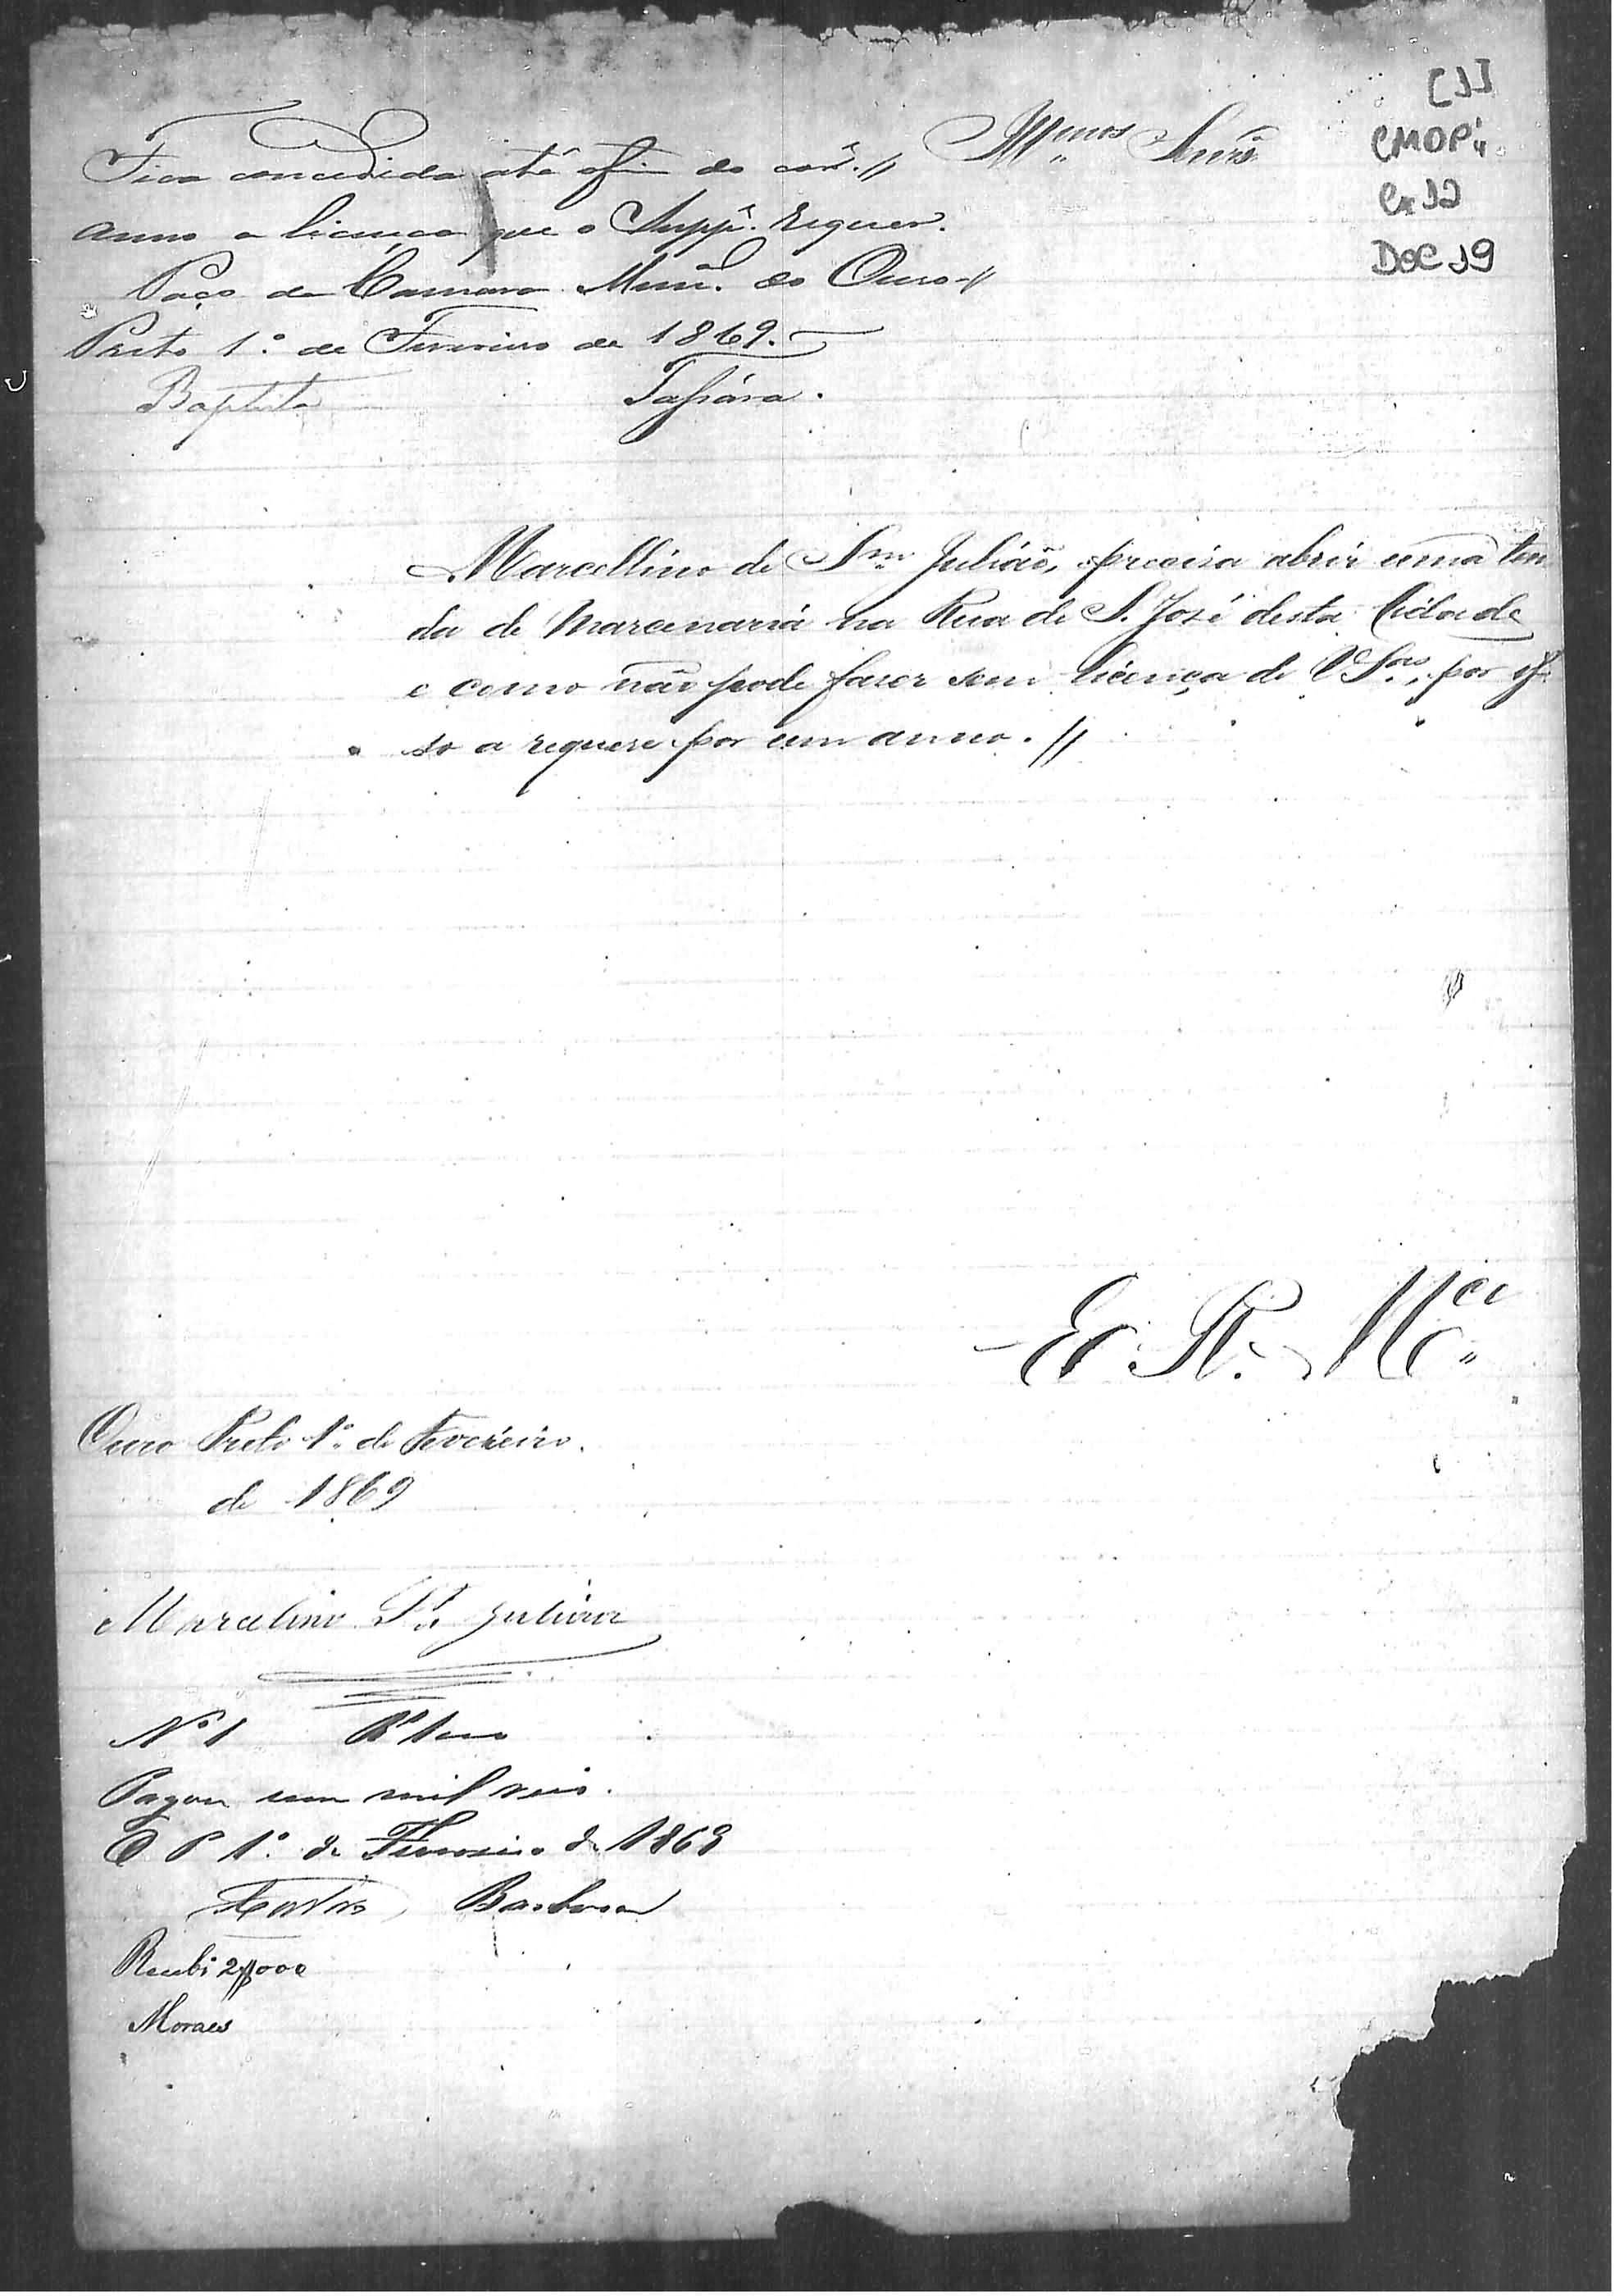 [1]
CMOP
Cx 12
DOC 19
Illmos Snrs
Fica concedida até o fim do corr.e
anno a licença que o Supp.e requer.
Paço da Camara Mun. do Ouro
Preto 1.º de Fevereiro de 1869.
Baptista
Marcellino de S. Julião, precisa abrir uma ten
da de Marcenaria na Rua de S. José desta Cidade
e como não pode faser sem licença de V Sas, por is
so a requere por um anno. //
E. R. Mce
Ouro Preto 1º de Fevereiro.
de 1869
Marcelino S. Julião
Nº 1
Pagou um mil reis.
O P 1º de Fevereiro de 1869
Barbosa
Recebi 2$000
Moraes